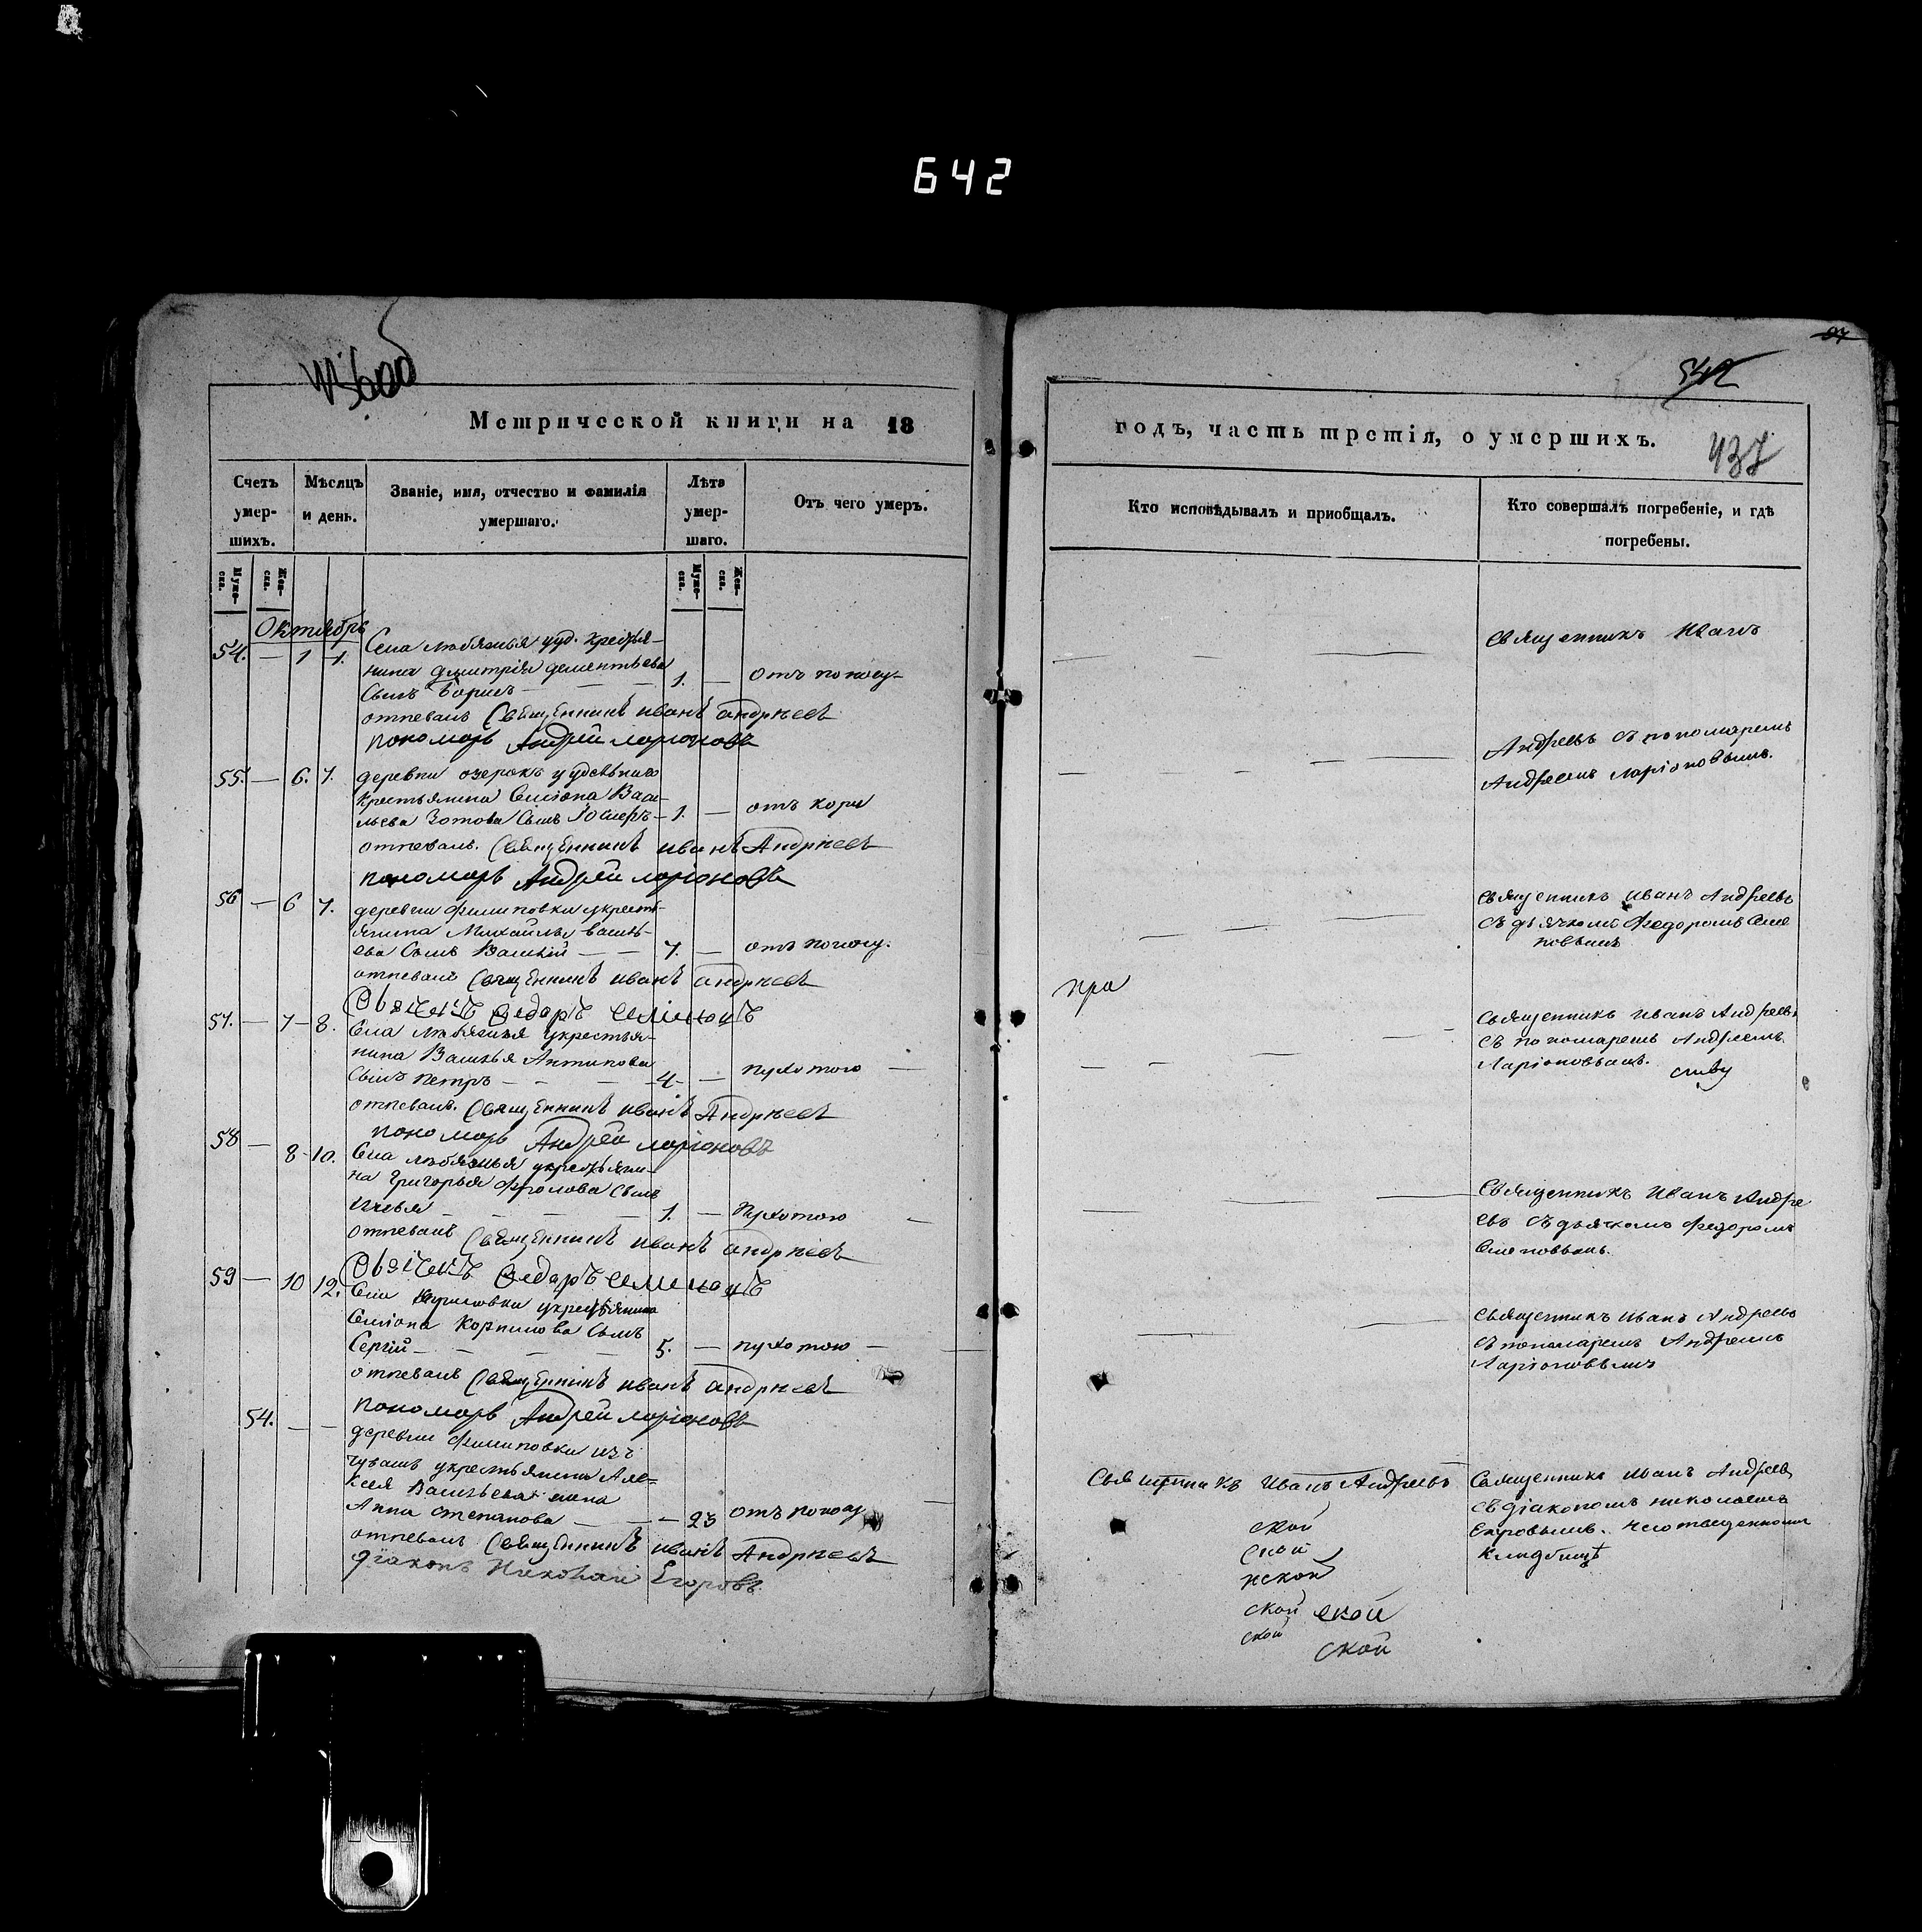 642
Метрической книги на 18
годъ, часть третія, о умершихъ.
542
437
Счетъ умер-шихъ.
Мѣсяцъ и день.
Званіе, имя, отчество и фамилія умершаго.
Лѣта умер-шаго.
Отъ чего умеръ.
Кто исповѣдывалъ и приобщалъ.
Кто совершалъ погребеніе, и гдѣ погребены.
Муже-ска.
Жен-ска.
Муже-ска.
Жен-ска.
Октябрь
54. — 1 1. Села
нина Димитрія Дементьева
Сынъ Борисъ — 1. — отъ поносу
отпевалъ Священникъ Иванъ Андреевъ
пономарь Андрей Ларіоновъ
Священникъ Иванъ
Андреевъ съ пономаремъ
Андреемъ Ларіоновымъ.
55. — 6. 7. деревни озерокъ удѣльнаго
крестьянина Симіона Васи-
льева Зотова Сынъ — 1. — отъ кори
отпевалъ. Священникъ Иванъ Андреевъ
пономарь Андрей Ларіоновъ
56 — 6 7. деревни Филиповки укресть-
янина Михайлы Василь-
ева Сынъ Василій — 7. — отъ поносу.
отпевалъ Священникъ Иванъ Андреевъ
Священникъ Иванъ Андреевъ
съ дьячкомъ Федоромъ Симе
новымъ
при
57. — 7 — 8. Села укрестья-
нина Василья Антипова
Сынъ Петръ — 4 — пухотою
отпевалъ. Священникъ Иванъ Андреевъ
пономарь Андрей Ларіоновъ
Священникъ Иванъ Андреевъ
съ пономаремъ Андреемъ
Ларіоновымъ.
58 — 8 — 10. Села укрестьяни-
на Григорья Фролова Сынъ
Илья — 1. — Пухотою
отпевалъ Священникъ Иванъ Андреевъ
Священникъ Иванъ Андре
евъ съ дьячкомъ Федоромъ
Сименовымъ.
59 — 10 12. Села укрестьянина
Симіона Корнилова Сынъ
Сергій — 5. — пухотою
отпевалъ Священникъ Иванъ Андреевъ
пономарь Андрей Ларіоновъ
Священникъ Иванъ Андреевъ
съ пономаремъ Андреемъ
Ларіоновымъ
54. — — деревни Филиповки изъ
чувашъ укрестьянина Але-
ксея Васильева жена
Анна Степанова — 23 отъ поносу
отпевалъ Священникъ Иванъ Андреевъ
діаконъ Николай Егоровъ.
Священникъ Иванъ Андреевъ
Священникъ Иванъ Андреевъ
съ діакономъ Николаемъ
Егоровымъ.
Кладбищѣ
ской
ской
нской
ской ской
ской
ской